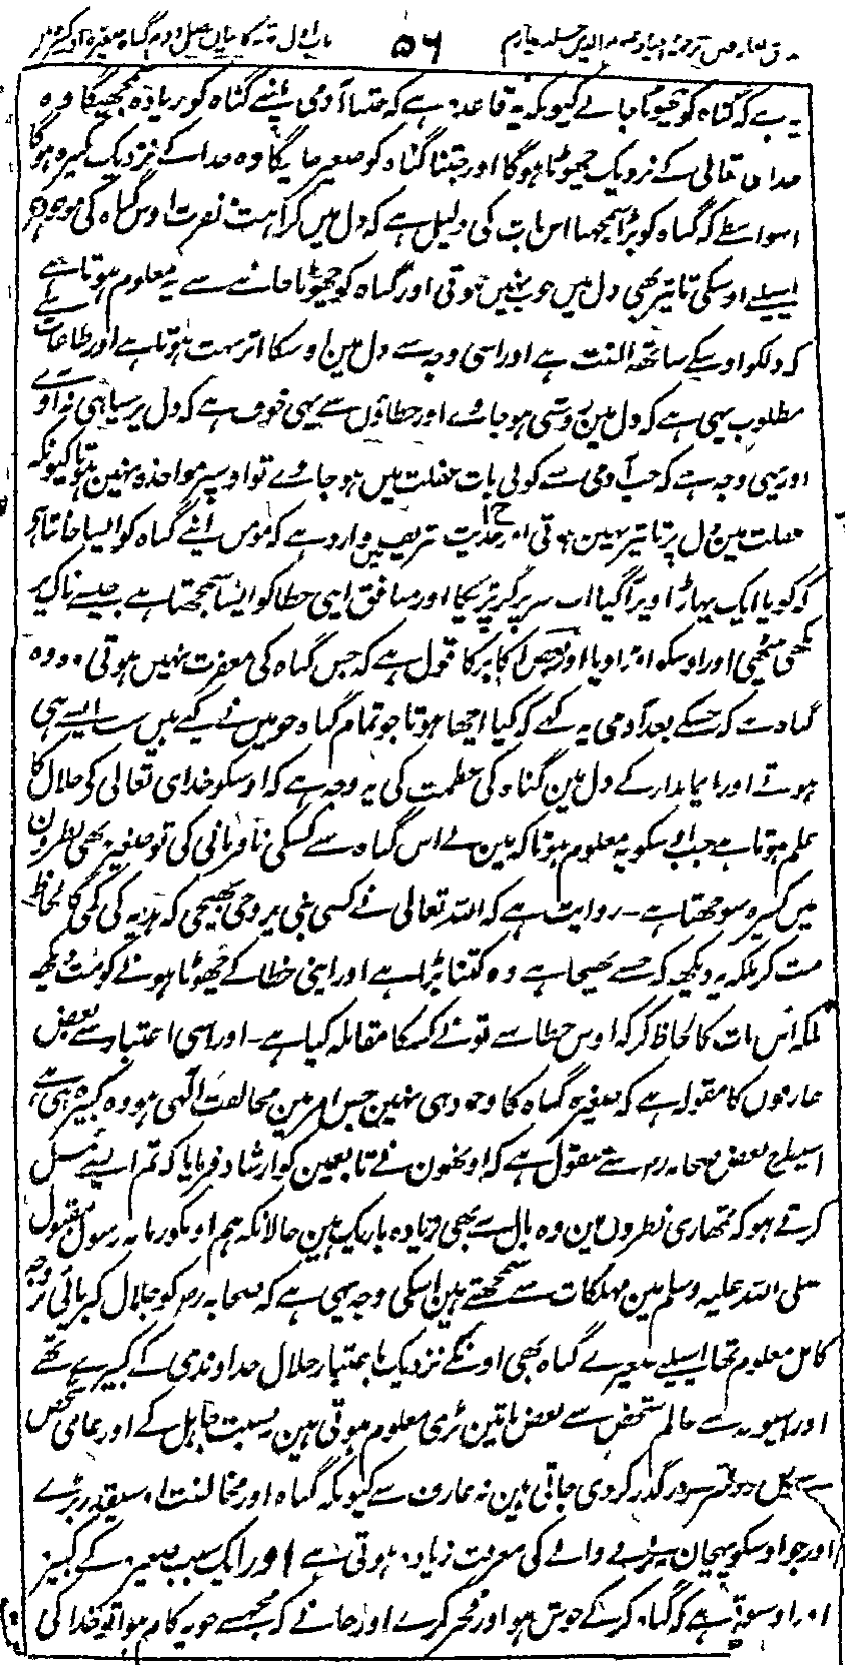 مذاق العارفین ترجمہ احیاء علوم الدین جلد چہارم ۵۶ باب اول توبہ کا بیان فصل دوم گناہ صغیرہ اور کبیرہ
یہ ہے کہ گناہ کو چھوٹا جانے کیونکہ یہ قاعدہ ہے کہ جتنا آدمی اپنے گناہ کو زیادہ سمجھیگا وہ
خداے تعالی کے نزدیک چھوٹا ہوگا اور جتنا گناہ کو صغیر جانیگا وہ خدا کے نزدیک کبیرہ ہوگا
اسواسطے کہ گناہ کو بڑا سمجھنا اس بات کی دلیل ہے کہ دل میں کراہت و نفرت اوس گناہ کی موجود ہے
اسیلیے اوسکی تاثیر بھی دل میں خوب نہیں ہوتی اور گناہ کو چھوٹا جاننے سے یہ معلوم ہوتا ہے
کہ دلکو اوسکے ساتھ الفت ہے اور اسی وجہ سے دل مین اوسکا اثر بہت ہوتا ہے اور طاعات سے
مطلوب یہی ہے کہ دل مین روشنی ہو جاوے اور خطاؤں سے یہی خوف ہے کہ دل پر سیاہی نہ آوے
اور یہی وجہ ہے کہ جب آدمی سے کوئی بات غفلت میں ہو جاوے تو اوسپر مواخذہ نہین ہوتا کیونکہ
غفلت مین دل پر تاثیر نہین ہوتی اور حدیث شریف میں وارد ہے کہ مومن اپنے گناہ کو ایسا جانتا ہے
کہ گویا ایک پہاڑ اوپر آگیا اب سر پر گر پڑیگا اور منافق اپنی خطا کو ایسا سمجھتا ہے جیسے ناک پر
مکھی بیٹھی اور اوسکو اوڑا دیا اور بعض اکابر کا قول ہے کہ جس گناہ کی مغفرت نہیں ہوتی وہ
گناہ ہے کہ جسکے بعد آدمی یہ کہے کہ کیا اچھا ہوتا جو تمام گناہ جو میں نے کیے ہیں سب ایسے ہی
ہوتے اور ایماندار کے دل مین گناہ کی عظمت کی یہ وجہ ہے کہ اوسکو خدای تعالی کے جلال کا
علم ہوتا ہے جب اوسکو یہ معلوم ہوتا کہ مین نے اس گناہ سے کسکی نافرمانی کی تو صغیرہ بھی نظرون
میں کبیرہ سوجھتا ہے۔ روایت ہے کہ اللہ تعالی نے کسی نبی پر وحی بھیجی کہ ہدیہ کی کمی کا لحاظ
مت کر بلکہ یہ دیکھ کہ جسنے بھیجا ہے وہ کتنا بڑا ہے اور اپنی خطا کے چھوٹا ہونے کو مت دیکھ
بلکہ اس بات کا لحاظ کر کہ اوس خطا سے تو نے کسکا مقابلہ کیا ہے۔ اور اسی اعتبار سے بعض
عارفوں کا مقولہ ہے کہ صغیرہ گناہ کا وجود ہی نہین جس امر مین مخالفت الٰہی ہو وہ کبیرہ ہی ہے،
اسیطرح بعض صحابہ رض سے منقول ہے کہ اونھون نے تابعین کو ارشاد فرمایا کہ تم ایسے عمل
کرتے ہو کہ تمھاری نظروں مین وہ بال سے بھی زیادہ باریک ہین حالانکہ ہم اونکو زمانہ رسول مقبول
صلی اللہ علیہ وسلم مین مہلکات سے سمجھتے تھے اسکی وجہ یہی ہے کہ صحابہ رض کو جلال کبریائی بروجہ
کامل معلوم تھا اسیلیے صغیرے گناہ بھی اونکے نزدیک باعتبار جلال خداوندی کے کبیرے تھے
اور اسیوجہ سے عالم شخص سے بعض باتین بڑی معلوم ہوتی ہین بہ نسبت جاہل کے اور عامی شخص
سے بعض دفعہ درگذر کر دی جاتی ہین نہ عارف سے کیونکہ گناہ اور مخالفت اوسیقدر بڑے
اور جو اوسکو پہچان کرنے والے کی معرفت زیادہ ہوتی ہے اور ایک سبب صغیرہ کے کبیرہ
کا یہ ہے کہ گناہ کر کے خوش ہو اور فخر کرے اور جانے کہ مجھسے جو یہ کام ہوا تو خدا کی